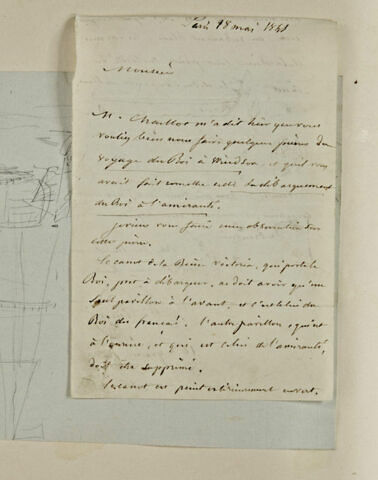 Paris 18 mai 18
Monsieur
M. Chaillot m'a dit hier que vous
vouliez bien nous faire quelques pierres du
voyage du Roi à Windsor et qu'il vous
avait fait connaître celle du débarquement
du Roi à l'amirauté.
je viens vous faire une observation sur
cette pierre.
Le canot de la Reine Victoria, qui porte le
Roi, prêt à débarquer, ne doit avoir qu'un
seul pavillon à l'avant, et c'est celui du
Roi des français. l'autre pavillon, qui est
à l'arrière, et qui est celui de l'amirauté,
doit être supprimé.
Le canot est peint extérieurement en vert.